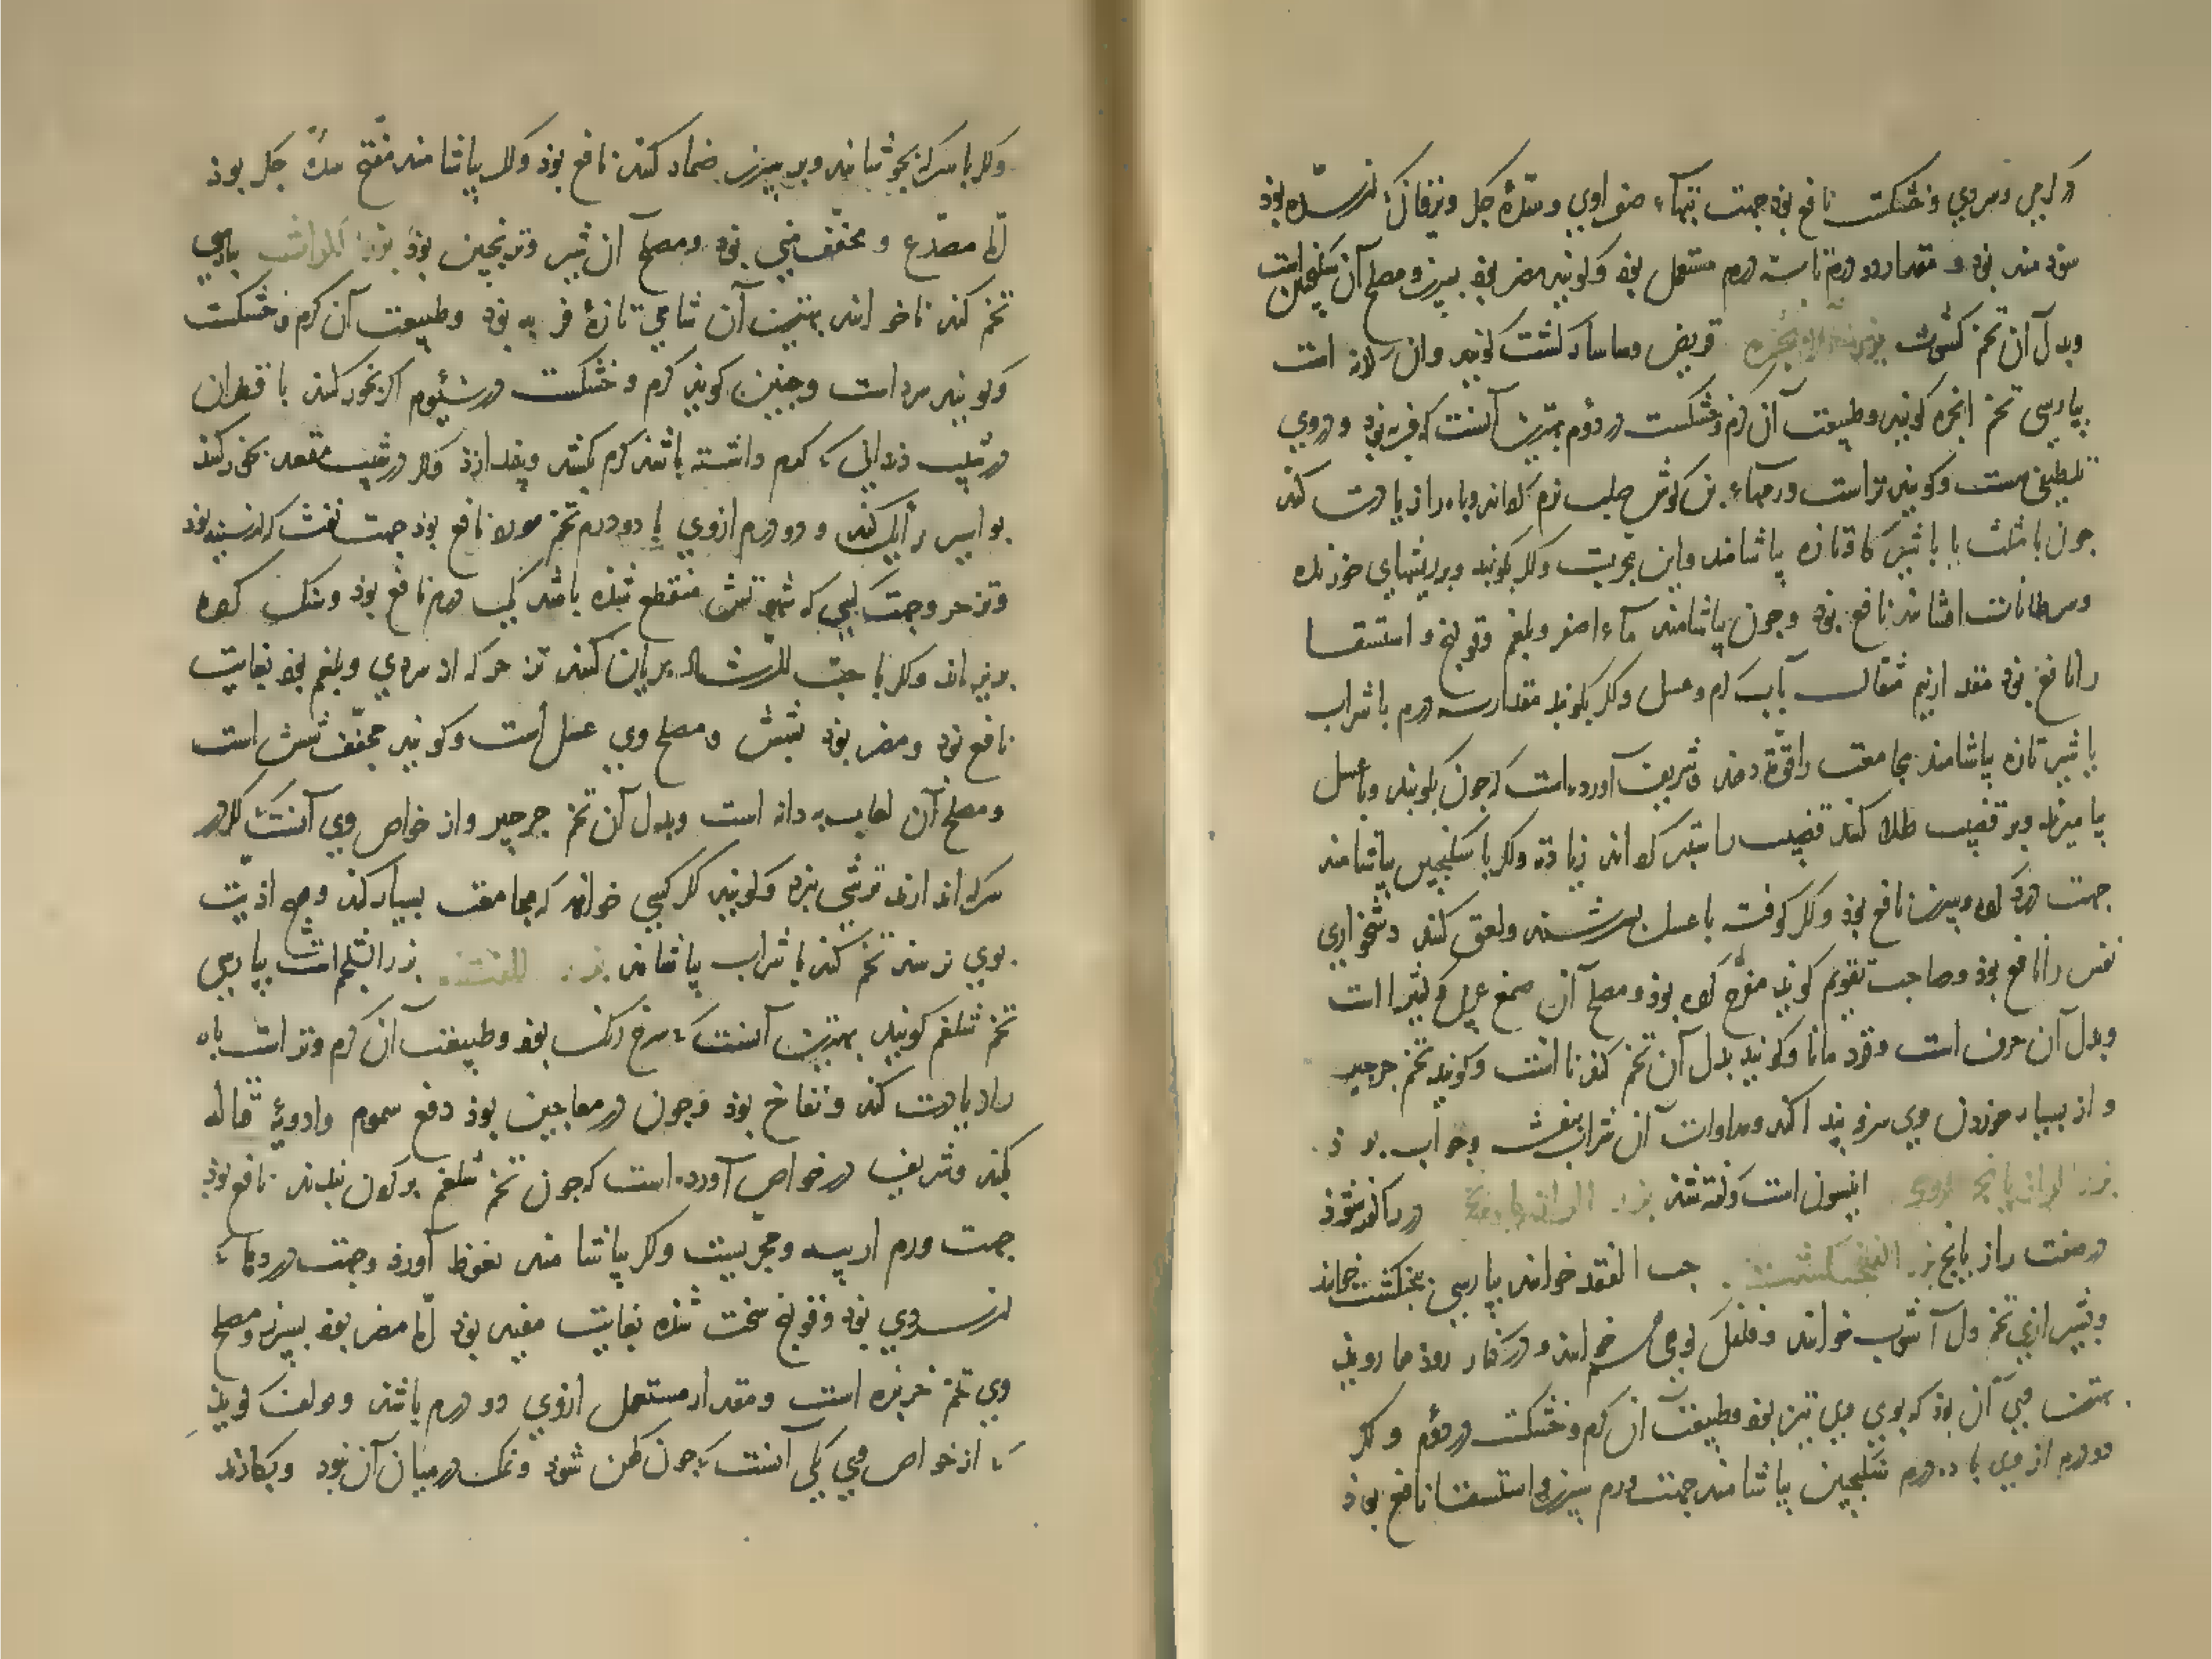 در کرمی وسردی وخشکست نافع بود جهت تبهاء صفراوی وسدّهٔ جکر ویرقان که از سدّه بود
سودمند بود و مقدار دو درم تا سه درم مستعمل بود وکویند مضر بود بسپرز ومصلح آن سکنجبین است
وبدل آن تخم کشوث بزر الانجره قریض وساسارکشت کویند وآن است
بپارسی تخم انجره کویند وطبیعت آن کرم وخشکست در دوم بهترین آنست که فربه بود و دروی
تلطیفی هست وکویند تر است ورمهاء بن کوش صلب نرم کرداند وباه را زیادت کند
جون با مثلث یا با شیر کاو تازه بیاشامند واین مجربست وکر بکوبند وبر ریشهای خورنده
وسرطانات افشانند نافع بود وجون بیاشامند ماء اصفر وبلغم وقولنج و استسقا
را نافع بود مقدار نیم مثقال بآب کرم وعسل وکر بکوبند مقدار سه درم با شراب
یا شیر تازه بیاشامند مجامعت را قوّة دهد وشریف آورده است که جون بکوبند وبا عسل
بیامیزند وبر قضیب طلا کنند قضیب را ستبر کرداند زیادة وکر با سکنجبین بیاشامند
جهت درد کرده وسپرز نافع بود وکر کوفته با عسل بسرشند ولعق کنند دشخواری
نفس را نافع بود وصاحب تقویم کوید مقرّح کرده بود ومصلح آن صمغ عربی وکتیرا است
وبدل آن حرف است وقرد مانا وکویند بدل آن تخم کندنا است وکویند تخم جرجیر
و از بسیار خوردن وی سرفه پیدا کند ومداوات آن بشراب بنفشه وجواب بود
بزر الرازیانج الرومی انیسون است وکفته شد بزر الرازیانج در راکفته شود
در صفت رازیانج بزر الفنجنکشت حب الفقد خوانند بپارسی پنجنکشت خوانند
وبشیرازی تخم دل آشوب خوانند وفلفل کوهی هم خوانند ودر کنار رودها روید
بهترین وی آن بود که بوی وی تیز بود وطبیعت آن کرم وخشکست در دوم وکر
دو درم از وی با ده درم سکنجبین بیاشامند جهت ورم سپرز واستسقا نافع بود
وکر با سرکه بجوشانند وبر سپرز ضماد کنند نافع بود وکر بیاشامند مفتح سدّهٔ جکر بود
امّا مصدّع و مجفّف منی بود ومصلح آن شیر وترنجبین بود بزر الکراث بپارسی
تخم کندنا خوانند بهترین آن شامی تازهٔ فربه بود وطبیعت آن کرم وخشکست
وکویند سرد است وجنین کویند کرم وخشکست در سیوم اکر بخور کنند با قطران
در شیب دندانی که کرم داشته باشد کرم بکشد وبیندازد وکر در شیب مقعد بخور کنند
بواسیر زایل کند و دو درم از وی با دو درم تخم مورد نافع بود جهت نفث که از سینه بود
وتزحر وجهت کسی که شهوتش منقطع شده باشد یک درم نافع بود وسنک کرده
بریزاند وکر با حبّ الرشاد بریان کنند تزحر که از سردی وبلغم بود بغایت
نافع بود ومضر بود بشش ومصلح وی عسل است وکویند مجفّف شش است
ومصلح آن لعاب به دانه است وبدل آن تخم جرجیر واز خواص وی آنست که کر در
سرکه اندازند ترشی ببرد وکویند کر کسی خواهد که مجامعت بسیار کند وهیج اذیّت
بوی نرسد تخم کندنا با شراب بیاشامد بزر اللفت بزر الشلجم است بپارسی
تخم شلغم کویند بهترین آنست که سرخ رنک بود وطبیعت آن کرم وتر است باه
را زیادت کند و نفاخ بود وجون در معاجین بود دفع سموم وادویهٔ قتاله
بکند وشریف در خواص آورده است که جون تخم شلغم بر کردن بندند نافع بود
جهت ورم اربیه ومجربست وکر بیاشامند نعوظ آورد وجهت دردها که
از سردی بود وقولنج سخت شده بغایت مفید بود امّا مضر بود بسپرز ومصلح
وی تخم خربزه است ومقدار مستعمل از وی دو درم باشد ومولف کوید
که از خواص وی یکی آنست که جون کهن شود و نمک در میان آن نبود وبکارند